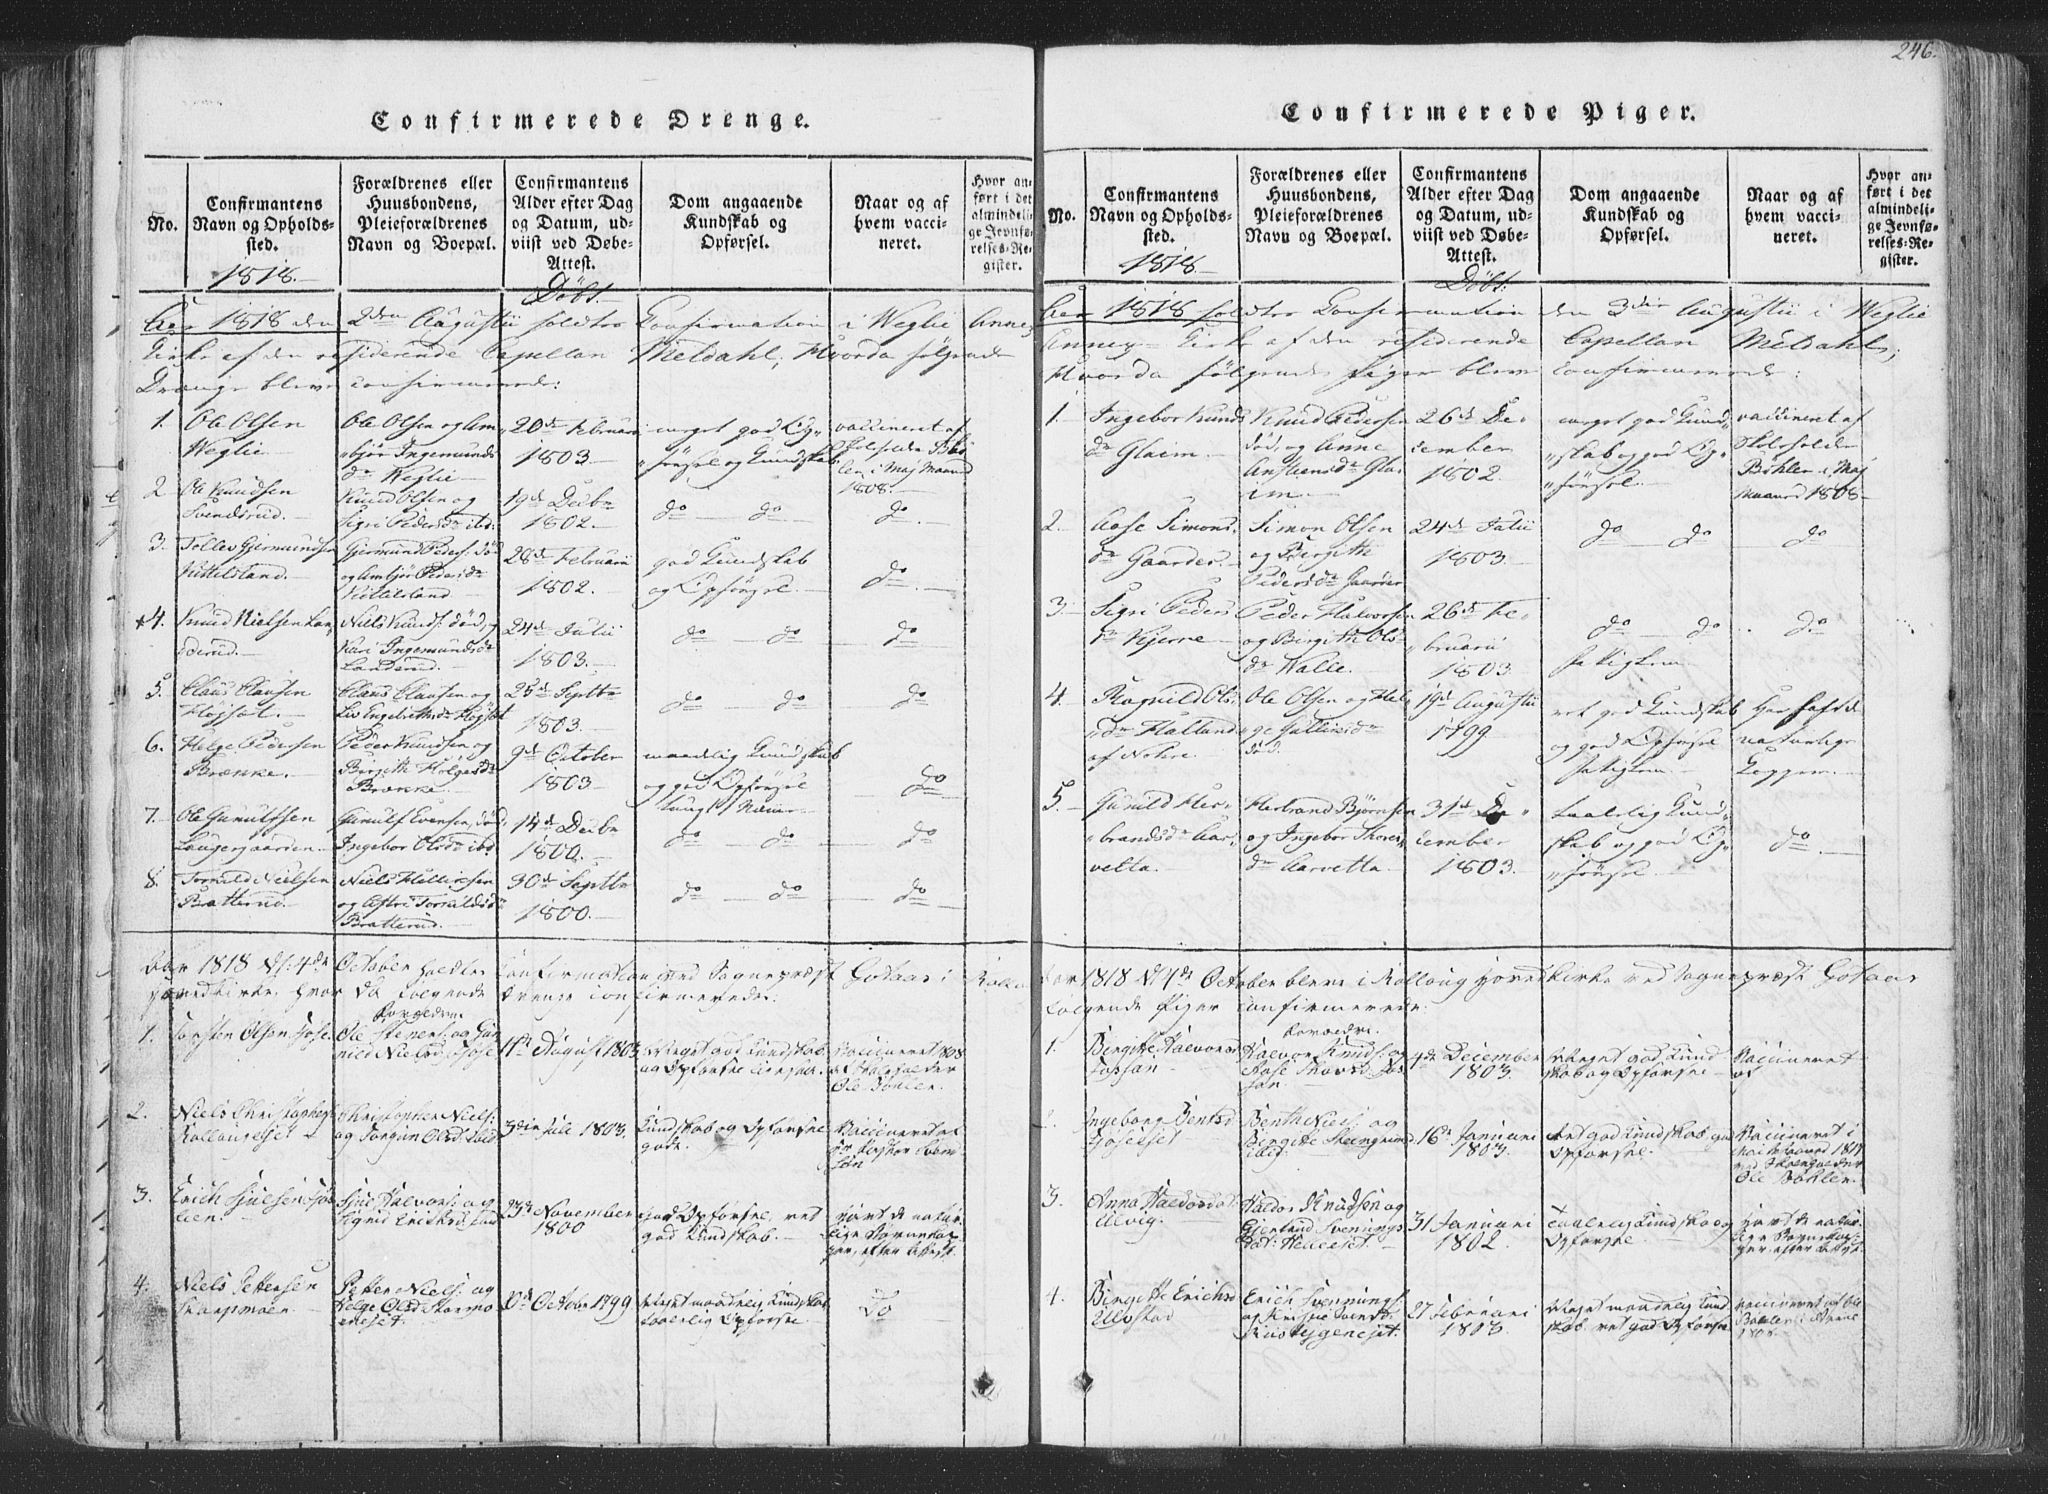 246.
Confirmerede Drenge.
No.
Confirmantens Navn og Opholds-sted.
1818.
Forældrenes eller Huusbondens, Pleieforældrenes Navn og Boepæl.
Confirmantens Alder efter Dag og Datum, ud-viist ved Døbe-Attest.
Döbt.
Dom angaaende Kundskab og Opførsel.
Naar og af hvem vacci-neret.
Hvor an-ført i det almindeli-ge Jevnfø-relses-Re-gister.
Aar 1818 den 2den Augustii holdtes Confirmation i Weglie Annex
Kirke af den residerende Capellan Meldahl, hvorda følgende
Drenge bleve confirmerede:
1. Ole Olsen
Weglie
Ole Olsen og Am-
bjør Ingemunds
dr Weglie
20de Februarii
1803
meget god Op-
førsel og Kundskab
vaccineret af
Skoleholder Böh-
len, i Maj Maaned
1808.
2. Ole Knudsen
Svendsrud.
Knud Olsen og
Sigri Pedersdr ibd.
19de Decbr
1802.
do do
do
3. Tollev Gjermundsen
Kittilsland.
Gjermund Peders: død
og Ambjör Pedersdr
Kittilsland
28de Februarii
1802.
god Kundskab
og Opførsel.
do
4. Knud Nielsen Lan-
derud.
Niels Knuds: død, og
Kari Ingemundsdr
Landerud.
24de Julii
1803.
do do
do
5. Claus Clausen
Højset.
Claus Clausen og
Liv Engebrethsdr Højset
25de Septbr
1803.
do do
do
6. Helge Pedersen
Brænke.
Peder Knudsen og
Birgith Helgesdr
Brænke.
9de October
1803
maadelig Kundskab
og god Opførsel
do
7. Ole Gunulfsen
Laugergaarden.
Gunulf Evensen, død
Ingebor Olsdr ibd
14de Decbr
1800.
do do
do
8. Torkild Nielsen
Bratterud.
Niels Hellicksen
og Astri Torkildsdr
Bratterud.
30de Septbr
1800.
do do
do
Aar 1818 d: 4de October holdtes Confirmation ved Sogneprest Gosaas i Rolla
Hovedkirke, hvor da følgende Drenge confirmeredes:
1. Torsten Olsen Jose
Forældre
Ole Steners: og Gun-
nild Nielsd: Jose
11te August 1803
Meget god Kundskab
og Opførsel
Vaccineret 1808
af Skoleholder
Ole Bøhlen.
2. Niels Christophers:
Rollaugeset
Christopher Niels:
og Jorgun Olsd: ibid
3die Juli 1803.
Kundskab og Opførsel
gode.
Vaccineret af
3. Erich Sjulsen
Sjul Halvors: og
Sigrid Erichsd:
23de November
1800
God Opførsel, ret
god Kundskab.
havt de natur-
lige Børnekop-
per, efter Attest.
4. Niels Pettersen
Skarpmoen
Petter Niels: og
Helge Olsd
October 1799
Meget maadelig Kundskab
taalelig Opførsel
Do
Confirmerede Piger.
No.
Confirmantens Navn og Opholds-sted.
1818
Forældrenes eller Huusbondens, Pleieforældrenes Navn og Boepæl.
Confirmantens Alder efter Dag og Datum, ud-viist ved Døbe-Attest.
Döbt:
Dom angaaende Kundskab og Opførsel.
Naar og af hvem vacci-neret.
Hvor an-ført i det almindeli-ge Jevnfø-relses-Re-gister.
Aar 1818 holdtes Confirmation den 3die Augustii i Weglie
Annex-Kirke af den residerende Capellan Meldahl,
hvorda følgende Piger bleve confirmerede:
1. Ingebor Knuds
dr Glaim.
Knud Pedersen
død, og Anne
Anstensdr Gla-
im.
26de De-
cember
1802.
meget god Kund-
skab og god Op-
førsel.
vaccineret af
Skoleholder
Böhlen i Maj
Maaned 1808
2. Aase Simons-
dr Gaarder.
Simon Olsen
og Birgithe
Pedersdr Gaarder
24de Julii
1803.
do do
do
3. Sigri Peders
dr Kjerne
Peder Halvorsen
og Birgith Ols-
dr Walle.
26de Fe-
bruarii
1803.
do do
do
4. Ragnild Ols-
dr Halland
af Nohre
Ole Olsen og Hel-
ge
død.
19de Augustii
1799
ret god Kundskab
og god Opførsel
Har hafde
naturlige
Kopper.
5. Gunild Her-
brandsdr Aar-
vetta.
Herbrand Bjørnsen
og Ingebor Thores-
dr Aarvetta.
31te De-
cember
1803.
taalelig Kund-
skab og god Op-
førsel.
do
Aar 1818 d 4de October bleve i Rollaug Hovedkirke ved Sogneprest Gosaas
følgende Piger confirmerede:
1. Birgitte Halvorsd
Forældre.
Halvor Knuds: og
Aase
4de December
1803.
Meget god Kund
skab og Opførsel
Vaccineret
af
2. Ingeborg Bentsd
Joseeset
Benth Niels: og
Birgitte Steingrimsd
ibid:
16de Januari
1803.
Ret god Kundskab og
Opførsel.
Vaccineret i
ved Skoleholder
Ole Bøhlen.
3. Anna Haldorsd:
Ulvig.
Haldor Knudsen og
Gjertrud Svennings
dat:
31 Januari
1802.
Taalelig Kundskab og
Opførsel
havt de natur-
lige Børnekop-
per, efter Attest.
4. Birgitte Erichsd
Ulvstad
Erich Svennings:
og
27 Februari
1803.
Meget maadelig Kund
skab, ret god Opførsel
vaccineret af Ole
Bøhlen
1808.